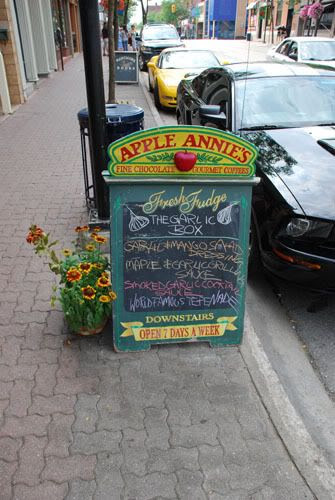 APPLE ANNIE'S
FINE CHOCOLATE GOURMET COFFEES
Fresh Fudge
THE GARLIC
BOX
GARLIC & MANGO
DRESSING
MAPLE & GARLIC GRILL
SAUCE
SMOKED GARLIC COCKTAIL
SAUCE
WORLD FAMOUS
DOWNSTAIRS
OPEN 7 DAYS A WEEK